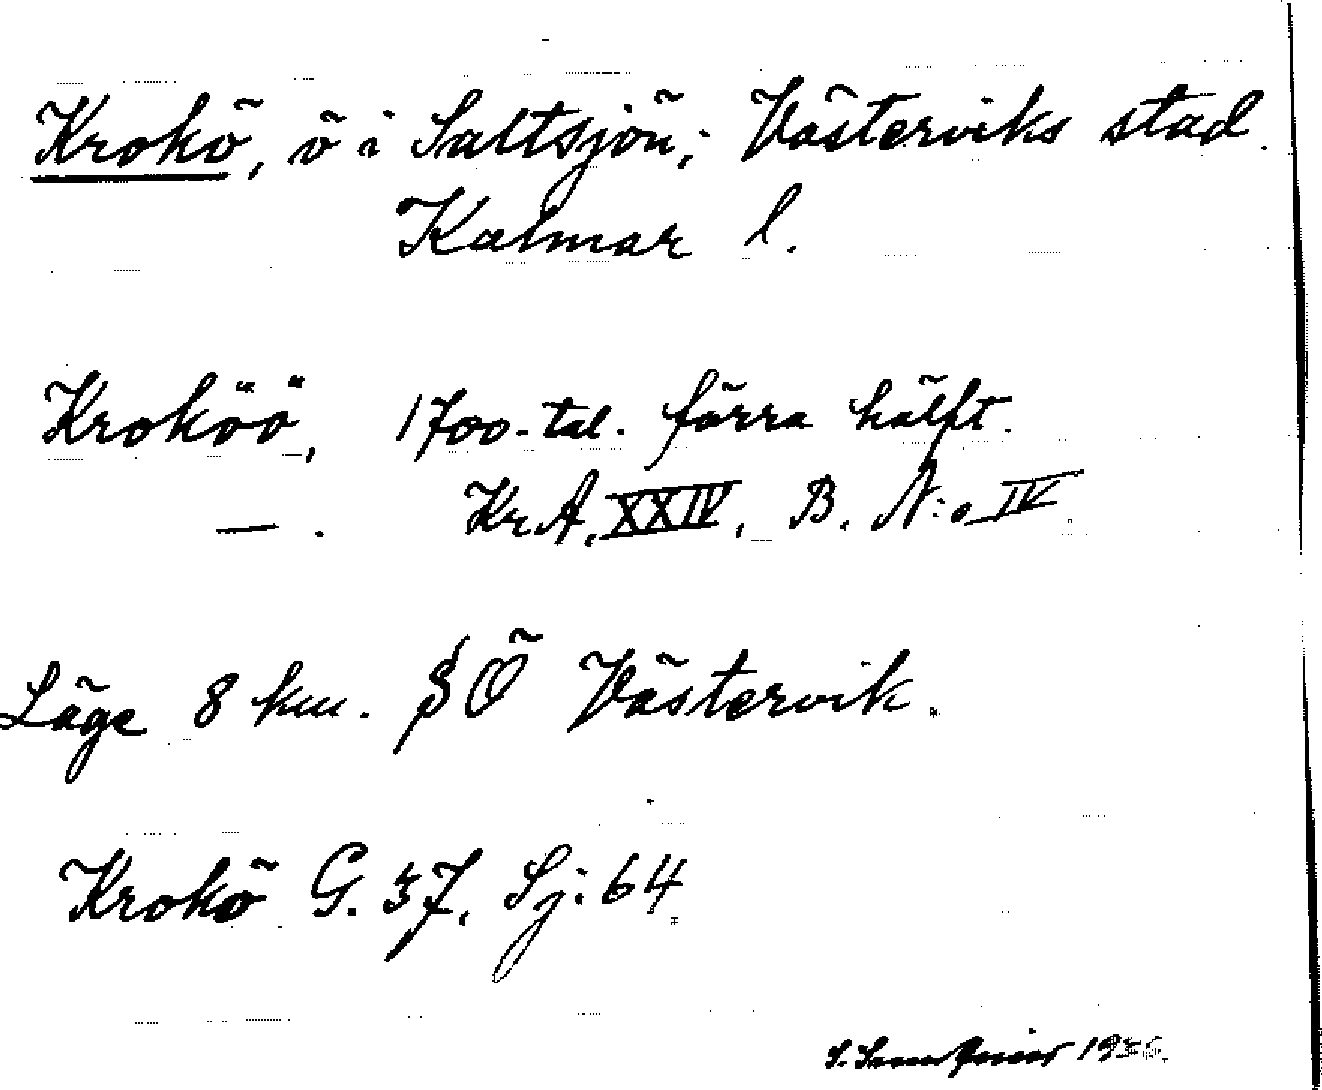 Krokö, ö i Saltsjön; Västerviks stad.
Kalmar l.
Kroköö, 1700-tal. förra hälft.
— . Kr.A, XXIV, B. N:o IV
Läge 8 km. SÖ Västervik.
Krokö G. 37, Sj: 64